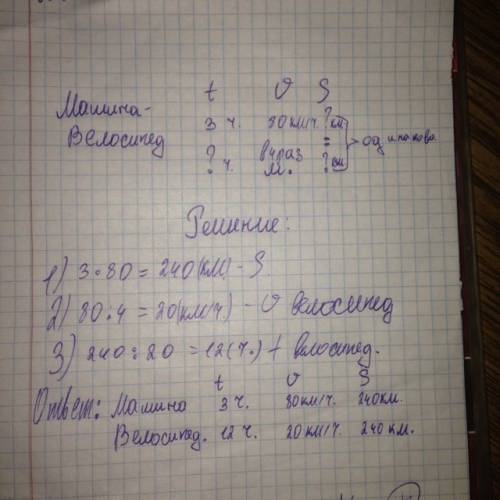 t v S
Машина- 3 ч. 80 км/ч. ? км
Велосипед ? ч. в 4 раз м. = ? км } одинаково
Решение:
1) 3·80 = 240 (км) - S
2) 80:4 = 20 (км/ч) - v велосипед
3) 240:20 = 12 (ч.) t велосипед.
t v S
Ответ: Машина 3 ч. 80 км/ч. 240 км.
Велосипед. 12 ч. 20 км/ч. 240 км.